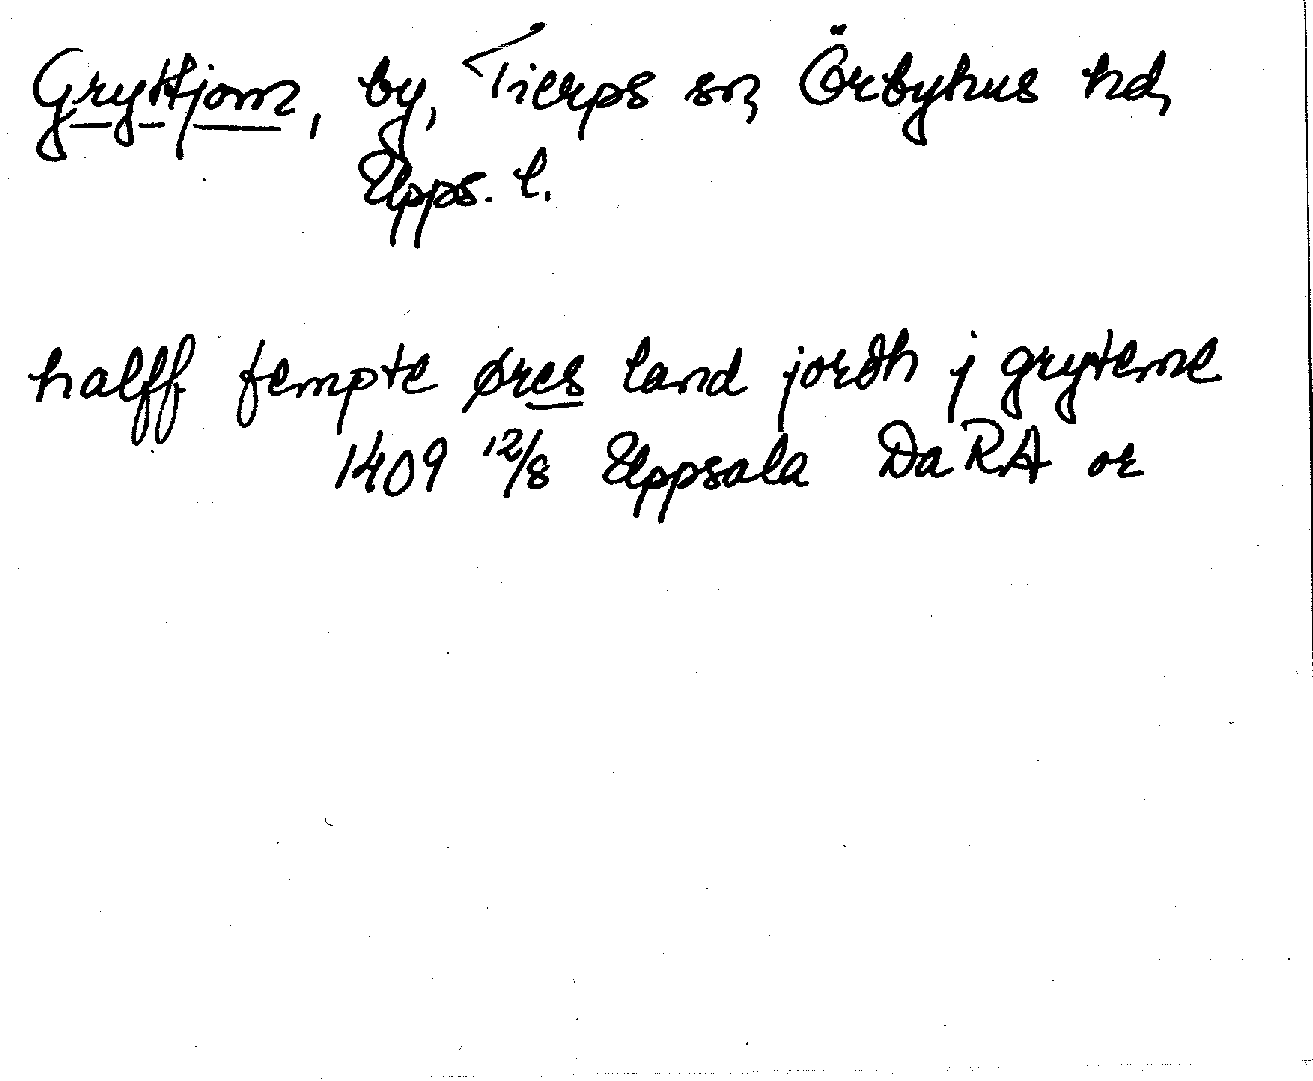 Gryttjom, by, Tierps sn, Örbyhus hd,
Upps. l.
halff fempte øres land jordh j gryteme
1409 12/8 Uppsala DaRA or